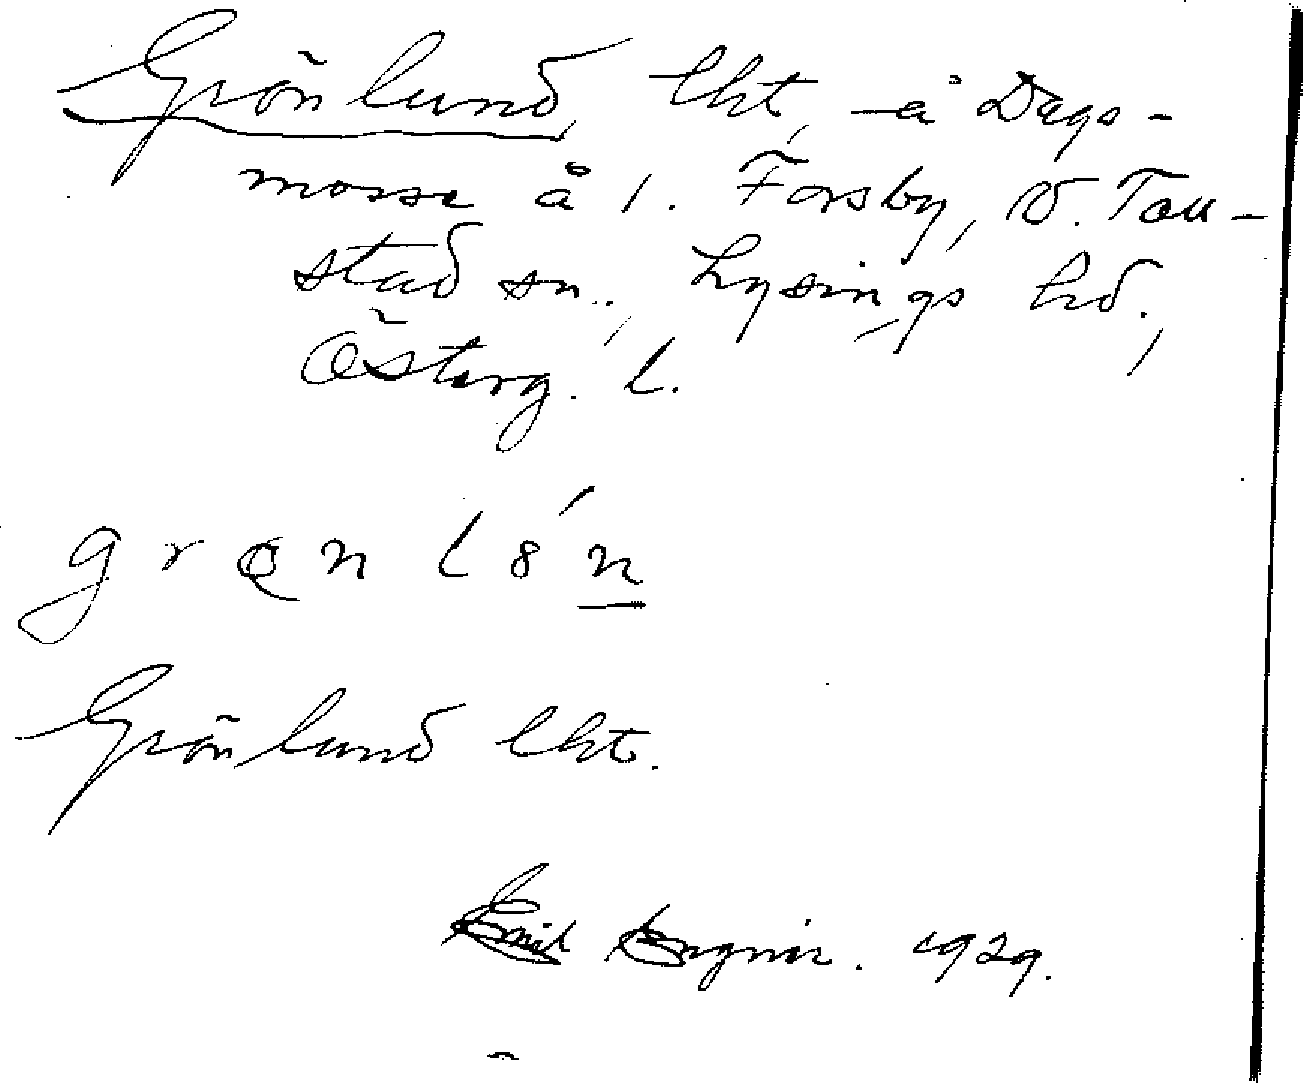 Grönlund, lht, å Dags-
mosse å 1. Forsby, V. Tollstad sn., Lysings hd.,
Österg. l.
grǫnlǿn
Grönlund lht.
Emil 1929.